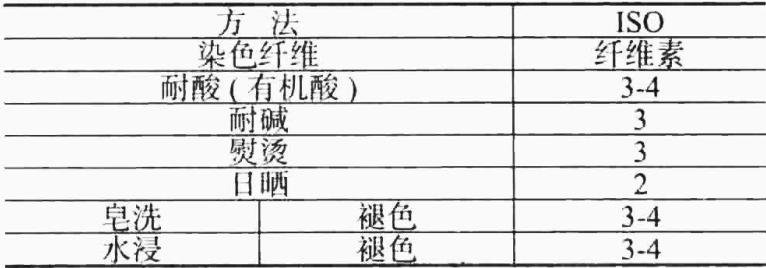 方 法 ISO
染色纤维 纤维素
耐酸(有机酸) 3-4
耐碱 3
熨烫 3
日晒 2
皂洗 褪色 3-4
水浸 褪色 3-4